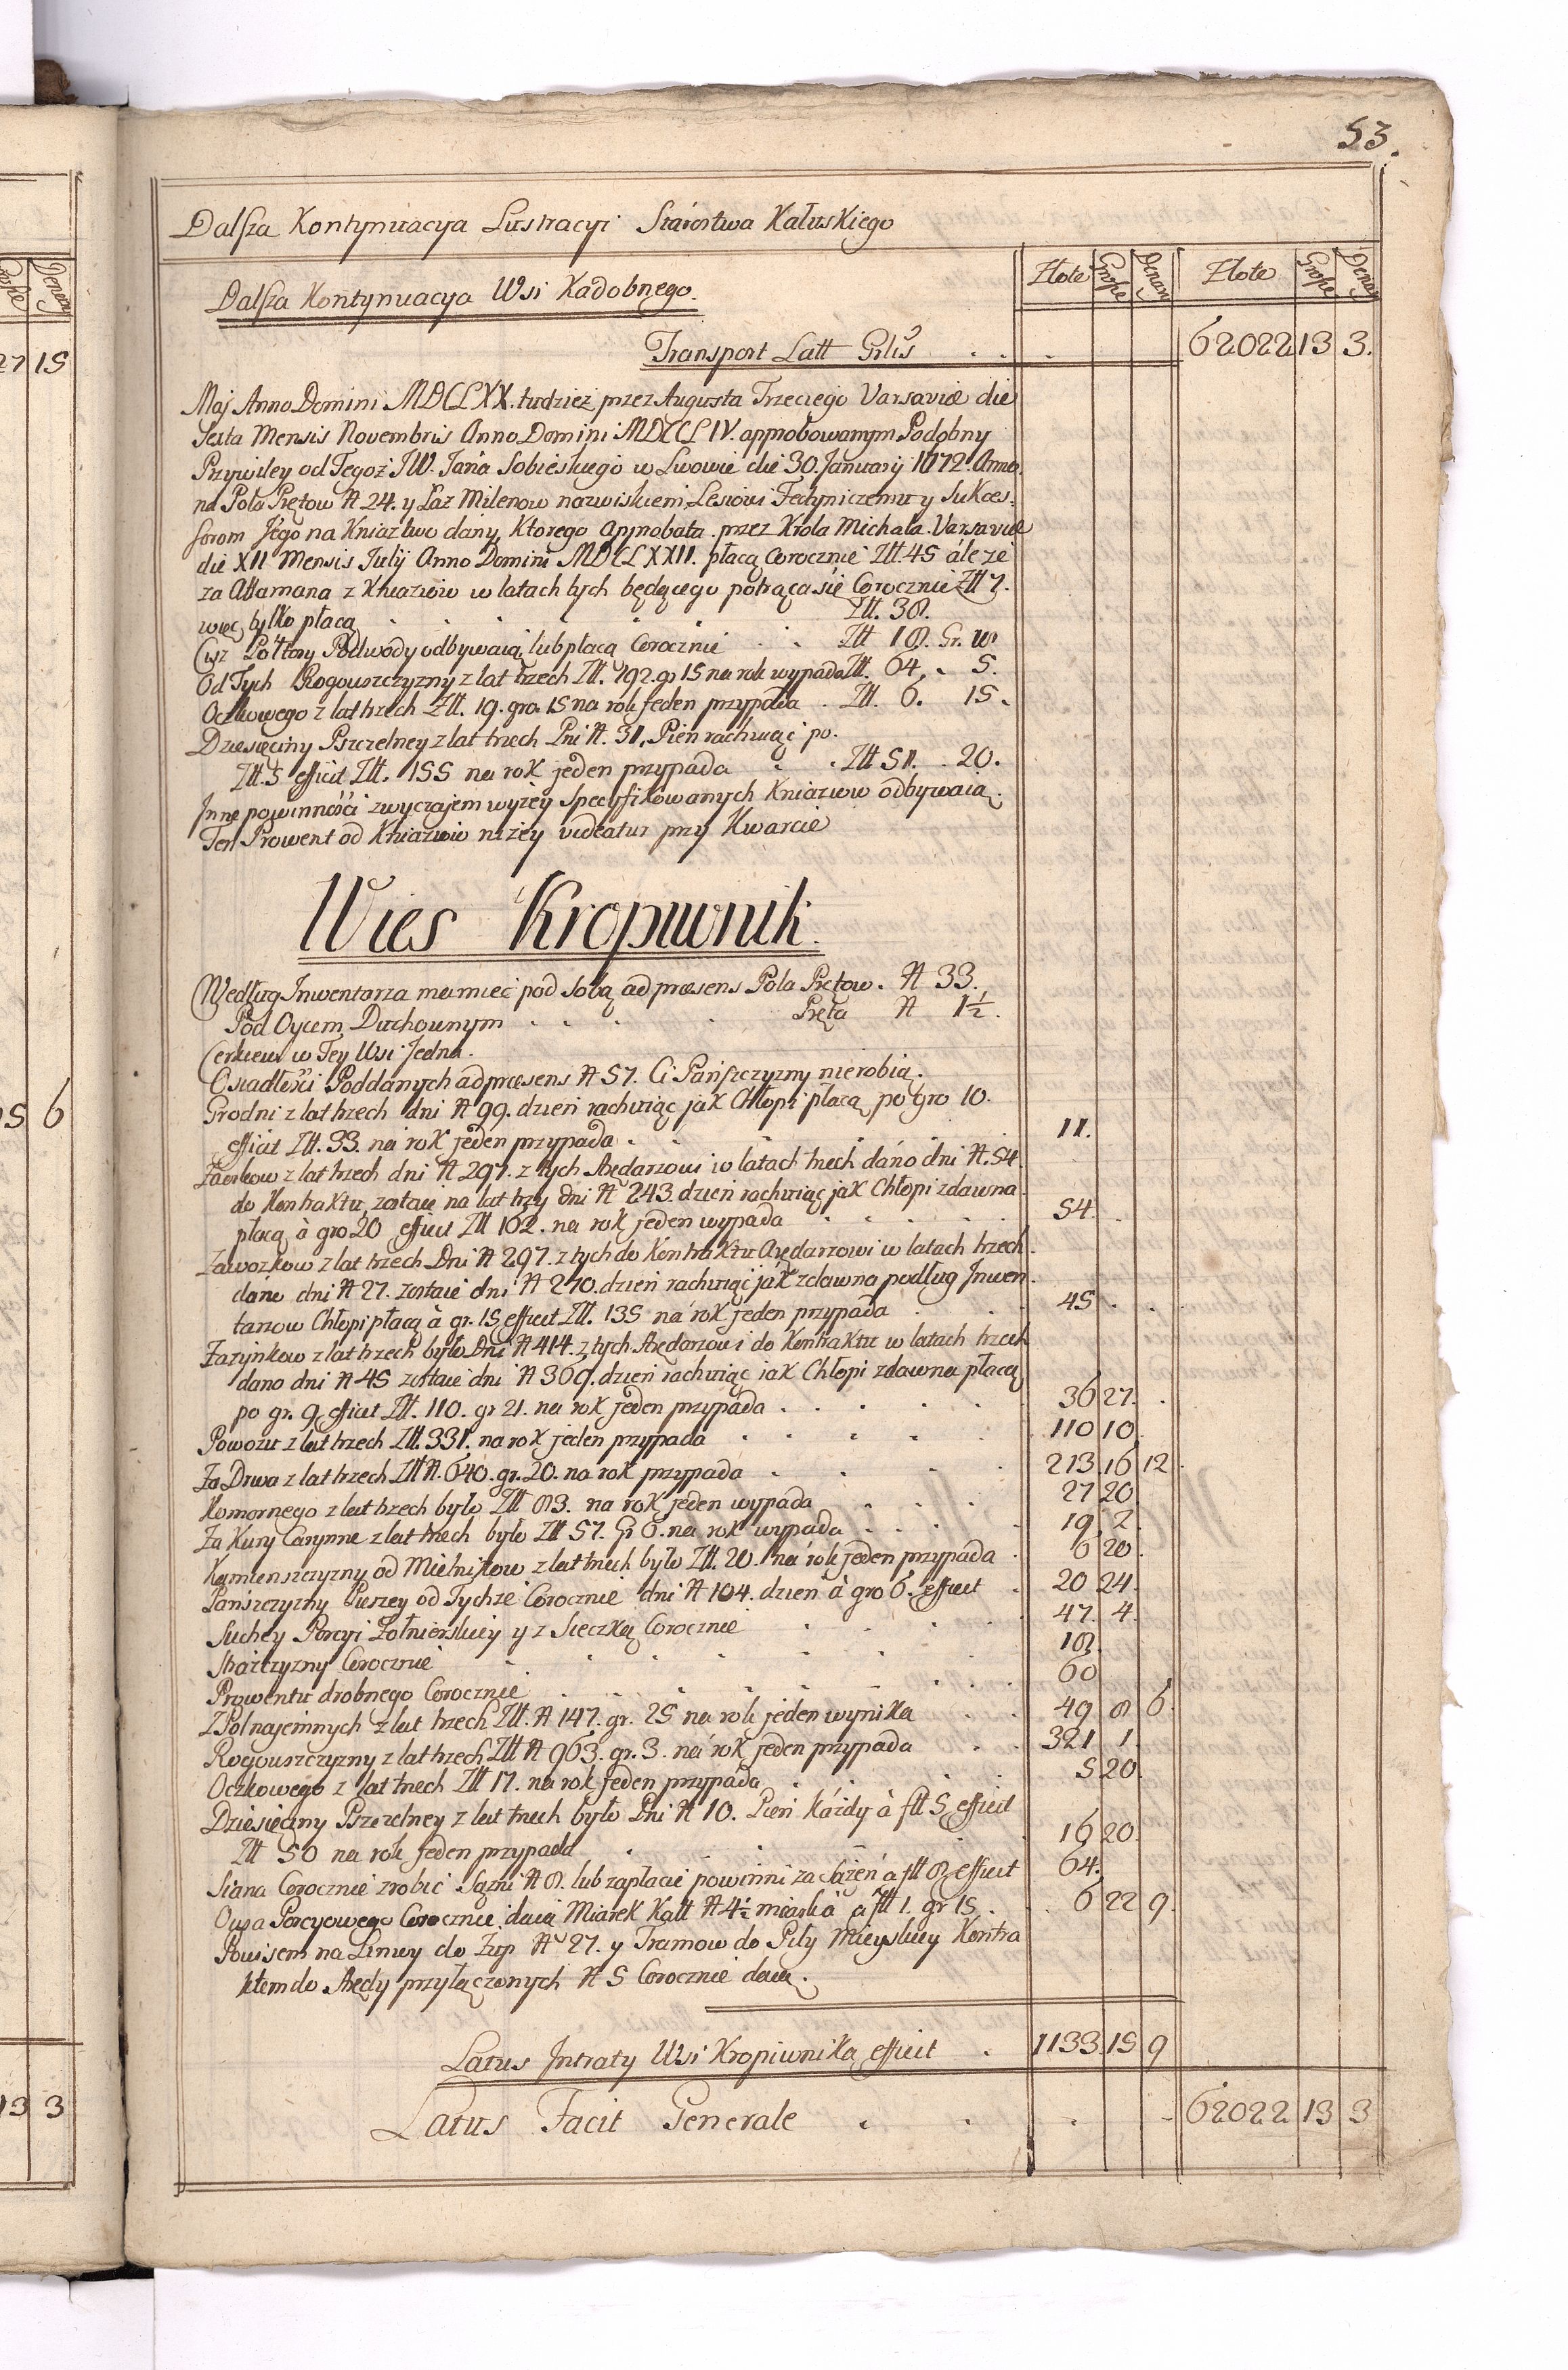 53.
Dalsza Kontynuacya Lustracyi Starostwa Kałuskiego
Złote Grosze Denar Złote Grosze Denar
Dalsza Kontynuacya Wsi Kadobnego.
Transport Latt Grlis . . . 62022 13 3.
Maj Anno Domini MDCLXX. tudzież przez Augusta Trzeciego Varsaviæ die
Sexta Mensis Novembris Anno Domini MDCCLIV. approbowanym Podobny
Przywiley od Tegoż JW. Jana Sobieskiego w Lwowie die 30. January 1672. Anno
na Pola Prętow № 24. y Łaz Milenow nazwiskiem Lesiowi Fedyniczemu y Sukces-
sorom Jego na Kniaztwo dany, Ktorego Approbata przez Krola Michala Varsaviæ
die XII Mensis Julij Anno Domini MDCLXXII. płacą Corocznie Złł. 45 ále że
za Attamana z Kniaziow w latach tych będącego potrąca się Corocznie Złł 7.
więc tylko płacą . . . . . Złł. 38.
Cisz Połtory Podwody odbywaią, lub płacą Corocznie . . Złł 18. Gr.
Od Tych Rogowszczyzny z lat trzech Złł. 192. gr 15 na rok wypada Złł. 64. 5.
Oczkowego z lat trzech Złł. 19. gro. 15 na rok jeden przypada . Złł. 6. 15.
Dziesięciny Pszczelney z lat trzech Pni №. 31, Pień rachuiąc po.
Złł. 5 efficit Złł. 155 na rok jeden przypada . . Złł 51. 20.
Inne powinności zwyczajem wyżey specyfikowanych Kniaziow odbywaią.
Ten Prowent od Kniaziow niżey videatur przy Kwarcie
Wies Kropiwnik.
Według Inwentarza ma mieć pod sobą ad præsens Pola Prętow. № 33.
Pod Oycem Duchownym . . . . Pręta № 1½.
Cerkiew w Tey Wsi Jedna.
Osiadłości Poddanych ad præsens № 57. Ci Pańszczyzny nie robią.
Grodni z lat trzech dni № 99. dzień rachuiąc jak Chłopi płacą po gro 10.
efficit Złł. 33. na rok jeden przypada . . . . 11.
Zaorkow z lat trzech dni № 297. z tych Arędarzowi w latach trzech dano dni №. 54.
do Kontraktu, zostaie na lat trzy dni № 243. dzień rachuiąc jak Chłopi zdawna
płacą à gro 20 efficit Złł 162. na rok jeden wypada . . . . 54.
Zawozkow z lat trzech Dni № 297. z tych do Kontraktu Arędarzowi w latach trzech
dano dni № 27. zostaie dni № 270. dzień rachuiąc jak zdawna podług Inwen-
tarzow Chłopi płacą à gr. 15 efficit Złł. 135 na rok jeden przypada . . . 45 . .
Zazynkow z lat trzech było Dni № 414. z tych Arędarzowi do Kontraktu w latach trzech
dano dni № 45 zostaie dni № 369. dzień rachuiąc jak Chłopi zdawna płacą
po gr. 9 efficit Złł. 110. gr 21. na rok jeden przypada . . . . . 36 27.
Powozu z lat trzech Złł. 331. na rok jeden przypada . . . . 110 10
Za Drwa z lat trzech Złł №. 640. gr. 20. na rok przypada . . . 213. 16 12
Komornego z lat trzech było Złł 83. na rok jeden wypada . . . 27 20
Za Kury Czynne z lat trzech było Złł 57. Gr 6. na rok wypada . . . . 19. 2.
Kamienszczyzny od Mielnikow z lat trzech było Złł. 20. na rok jeden przypada . 6 20
Pańszczyzny Pieszey od Tychże Corocznie dni № 104. dzień à gro 6. efficit . 20 24.
Suchey Porcyi Żołnierskiey y z Sieczką Corocznie . . . . 47. 4.
Strażczyzny Corocznie . . . . . . 18.
Prowentu drobnego Corocznie . . . . . 60
Z Pol najemnych z lat trzech Złł. № 147. gr. 25 na rok jeden wynika . . 49 8 6.
Rogowszczyzny z lat trzech Złł № 963. gr. 3. na rok jeden przypada . . 321 1.
Oczkowego z lat trzech Złł 17. na rok jeden przypada . . . . 5 20.
Dziesięciny Pszczelney z lat trzech było Pni № 10. Pień każdy à fll 5 efficit
Złł 50 na rok jeden przypada . . . . . 16 20.
Siana Corocznie zrobić Sązni № 8. lub zapłacić powinni za Sążeń à fll 8 efficit 64.
Owsa Porcyowego Corocznie daią Miarek Kałł № 4½ miarka à fll 1. gr 15. . . 6 22 9.
Powisem na Linwy do Żup № 27. y Tramow do Piły Mieyskiey Kontra
ktem do Arędy przyłączonych № 5 Corocznie daią.
Latus Intraty Wsi Kropiwnika efficit . 1133 15 9
Latus Facit Generale . . . . 62022 13 3